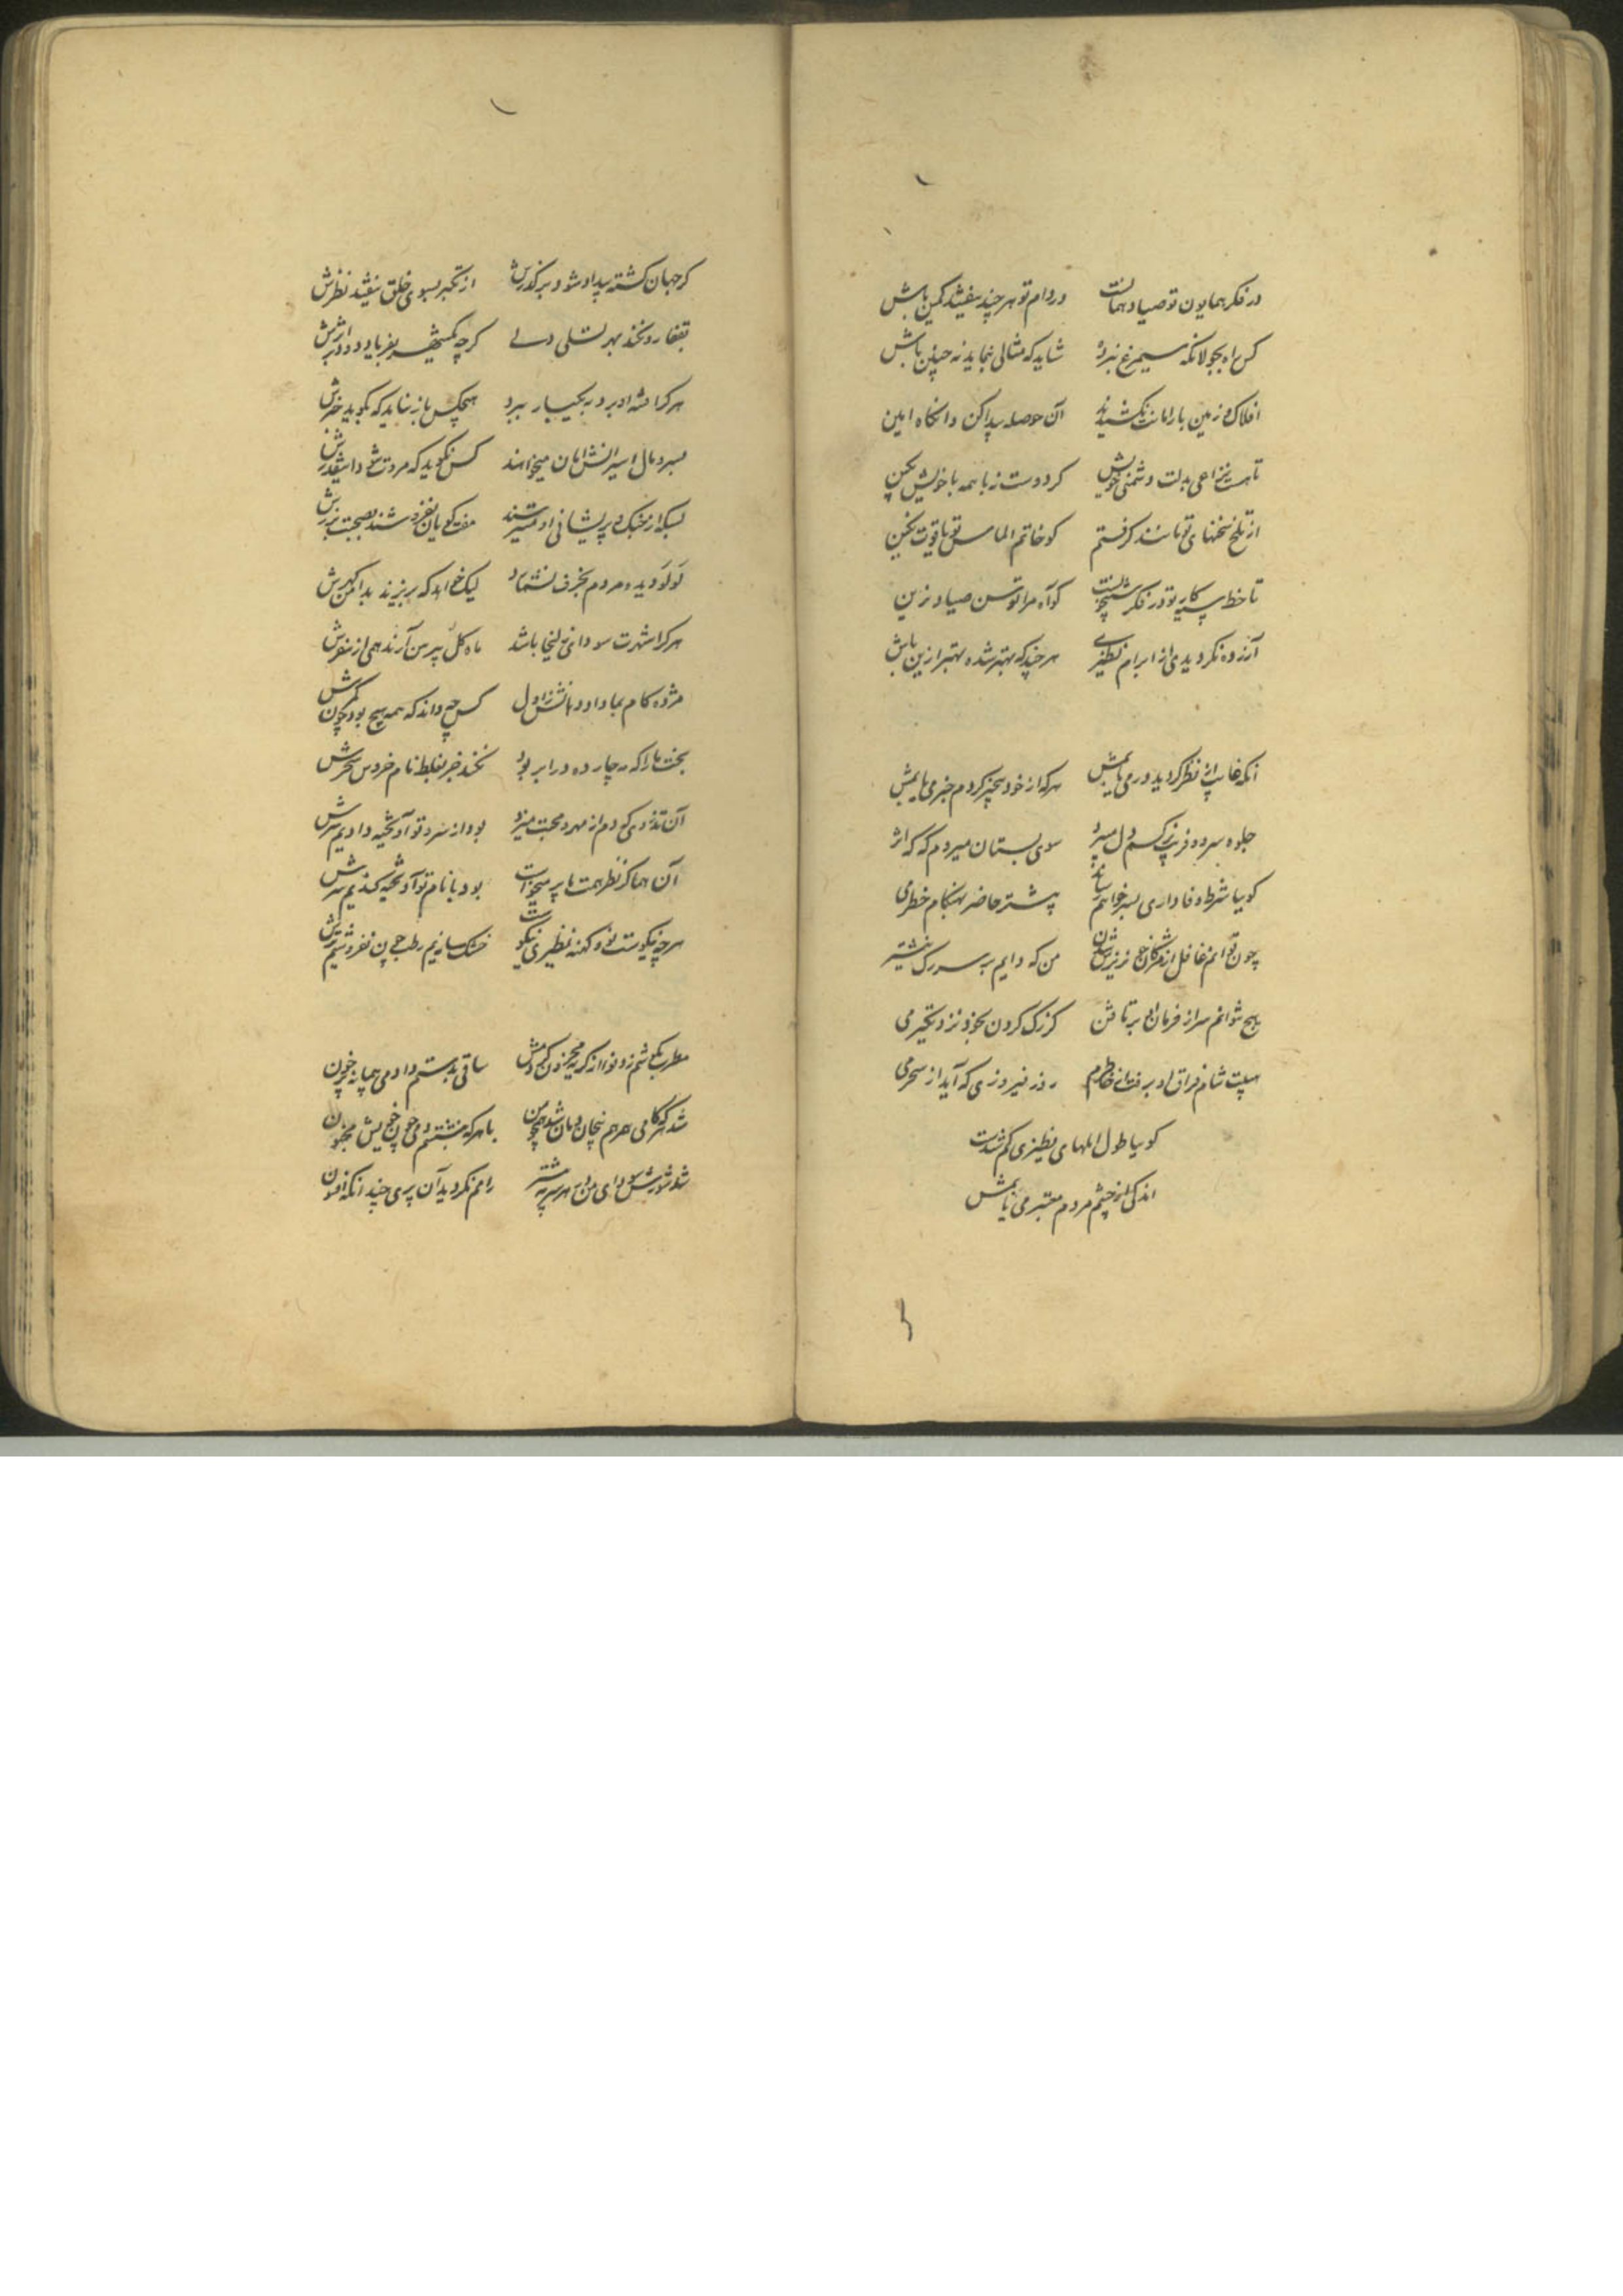 در فکر همایون تو صیاد و هماست در دام تو هر چند نیفتد بکمین باش
کس راه بجولانگه سیمرغ نبرده شاید که مثالی بنماید نه چنین باش
افلاک و زمین بار امانت نکشیدند آن حوصله پیدا کن و آنگاه امین
تا هست نزاعی بدلت دشمن خویش کر دوست نه با همه با خویش بکین
از تلخ سخنهای تو مانند گرفتم کو خاتم الماس تو یاقوت نگین
تا خط سیه کار تو در فکر شبیخونست کو آه مرا توسن صیاد زین
آزرده نکردیدی از ابرام نظیری هر چند که بهتر شده بهتر ازین باش
آنکه غایب از نظر کردید در می یابمش هر که از خود بیخبر کردم خبر می یابمش
جلوه سرو و فریب نرکسم دل میبرد سوی بستان میروم که که اثر
کوییا شرط وفاداری بسر خواهم رساند پیشتر حاضر بهنکام خطر می
چون توانم غافل از مژکان خونریزش شدن من که دایم بر سر رک نیشتر
هیچ نتوانم سر از فرمان او بر تافتن کز رک کردن بخود نزدیکتر می
نیست شام فراق او برفت از خاطرم روز فیروزی که آید از سحر می
کوییا طول املهای نظیری کم شدست
اندکی از چشم مردم معتبر می یابمش
کر جهان کشته بیداد شود بر کذرش از تکبر بسوی خلق نیفتد نظرش
بقفا رو نکند بهر تسلی دلی کرچه یکشهر بفریاد دود بر اثرش
هر کرا او برد در بکسار برد هیچکس باز نیاید که بکوید خبرش
بسر و مال اسیرانش امان میخواهند کس نکوید که مروت شود دامنکیرش
بسکه از مشک پریشانی او سیر شدند مفت کویان نفروشند بصحبت
لولو دیده مردم بخزف نشمارد لیک خواهد که بریزند بدامن کهرش
هر کرا شهرت سودای زلیخا باشد ماه کل پیرهن آرند همی از سفرش
مژده کام بما داد دهانش ز اول کس چه داند که همه هیچ بود چون کمرش
بخت ما را که چارده در ابر بود نکند جز بغلط نام خروس سحرش
آن تذروی که دم از مهر و محبت میزد بود از سرو تو آویخته دادیم سرش
آن هما کز نظر همت ما پر میخواست بود با نام تو آویخته کندیم پرش
هر چه نیکوست نو و کهنه نظیری نیکوست خشک سازیم رطب چون نفروشیم ترش
مطرب بکوشم زد نوا از کریه محزون کردمش ساقی بدستم داد می پیمانه پر خون
شد هر که کامی همرهم پنچان و مان شد همچو من با هر که بنشستم دمی چون خویش مجنون
شد شورش سودای من از هر پری بیشتر رامم نکردید آن پری چندانکه افسون